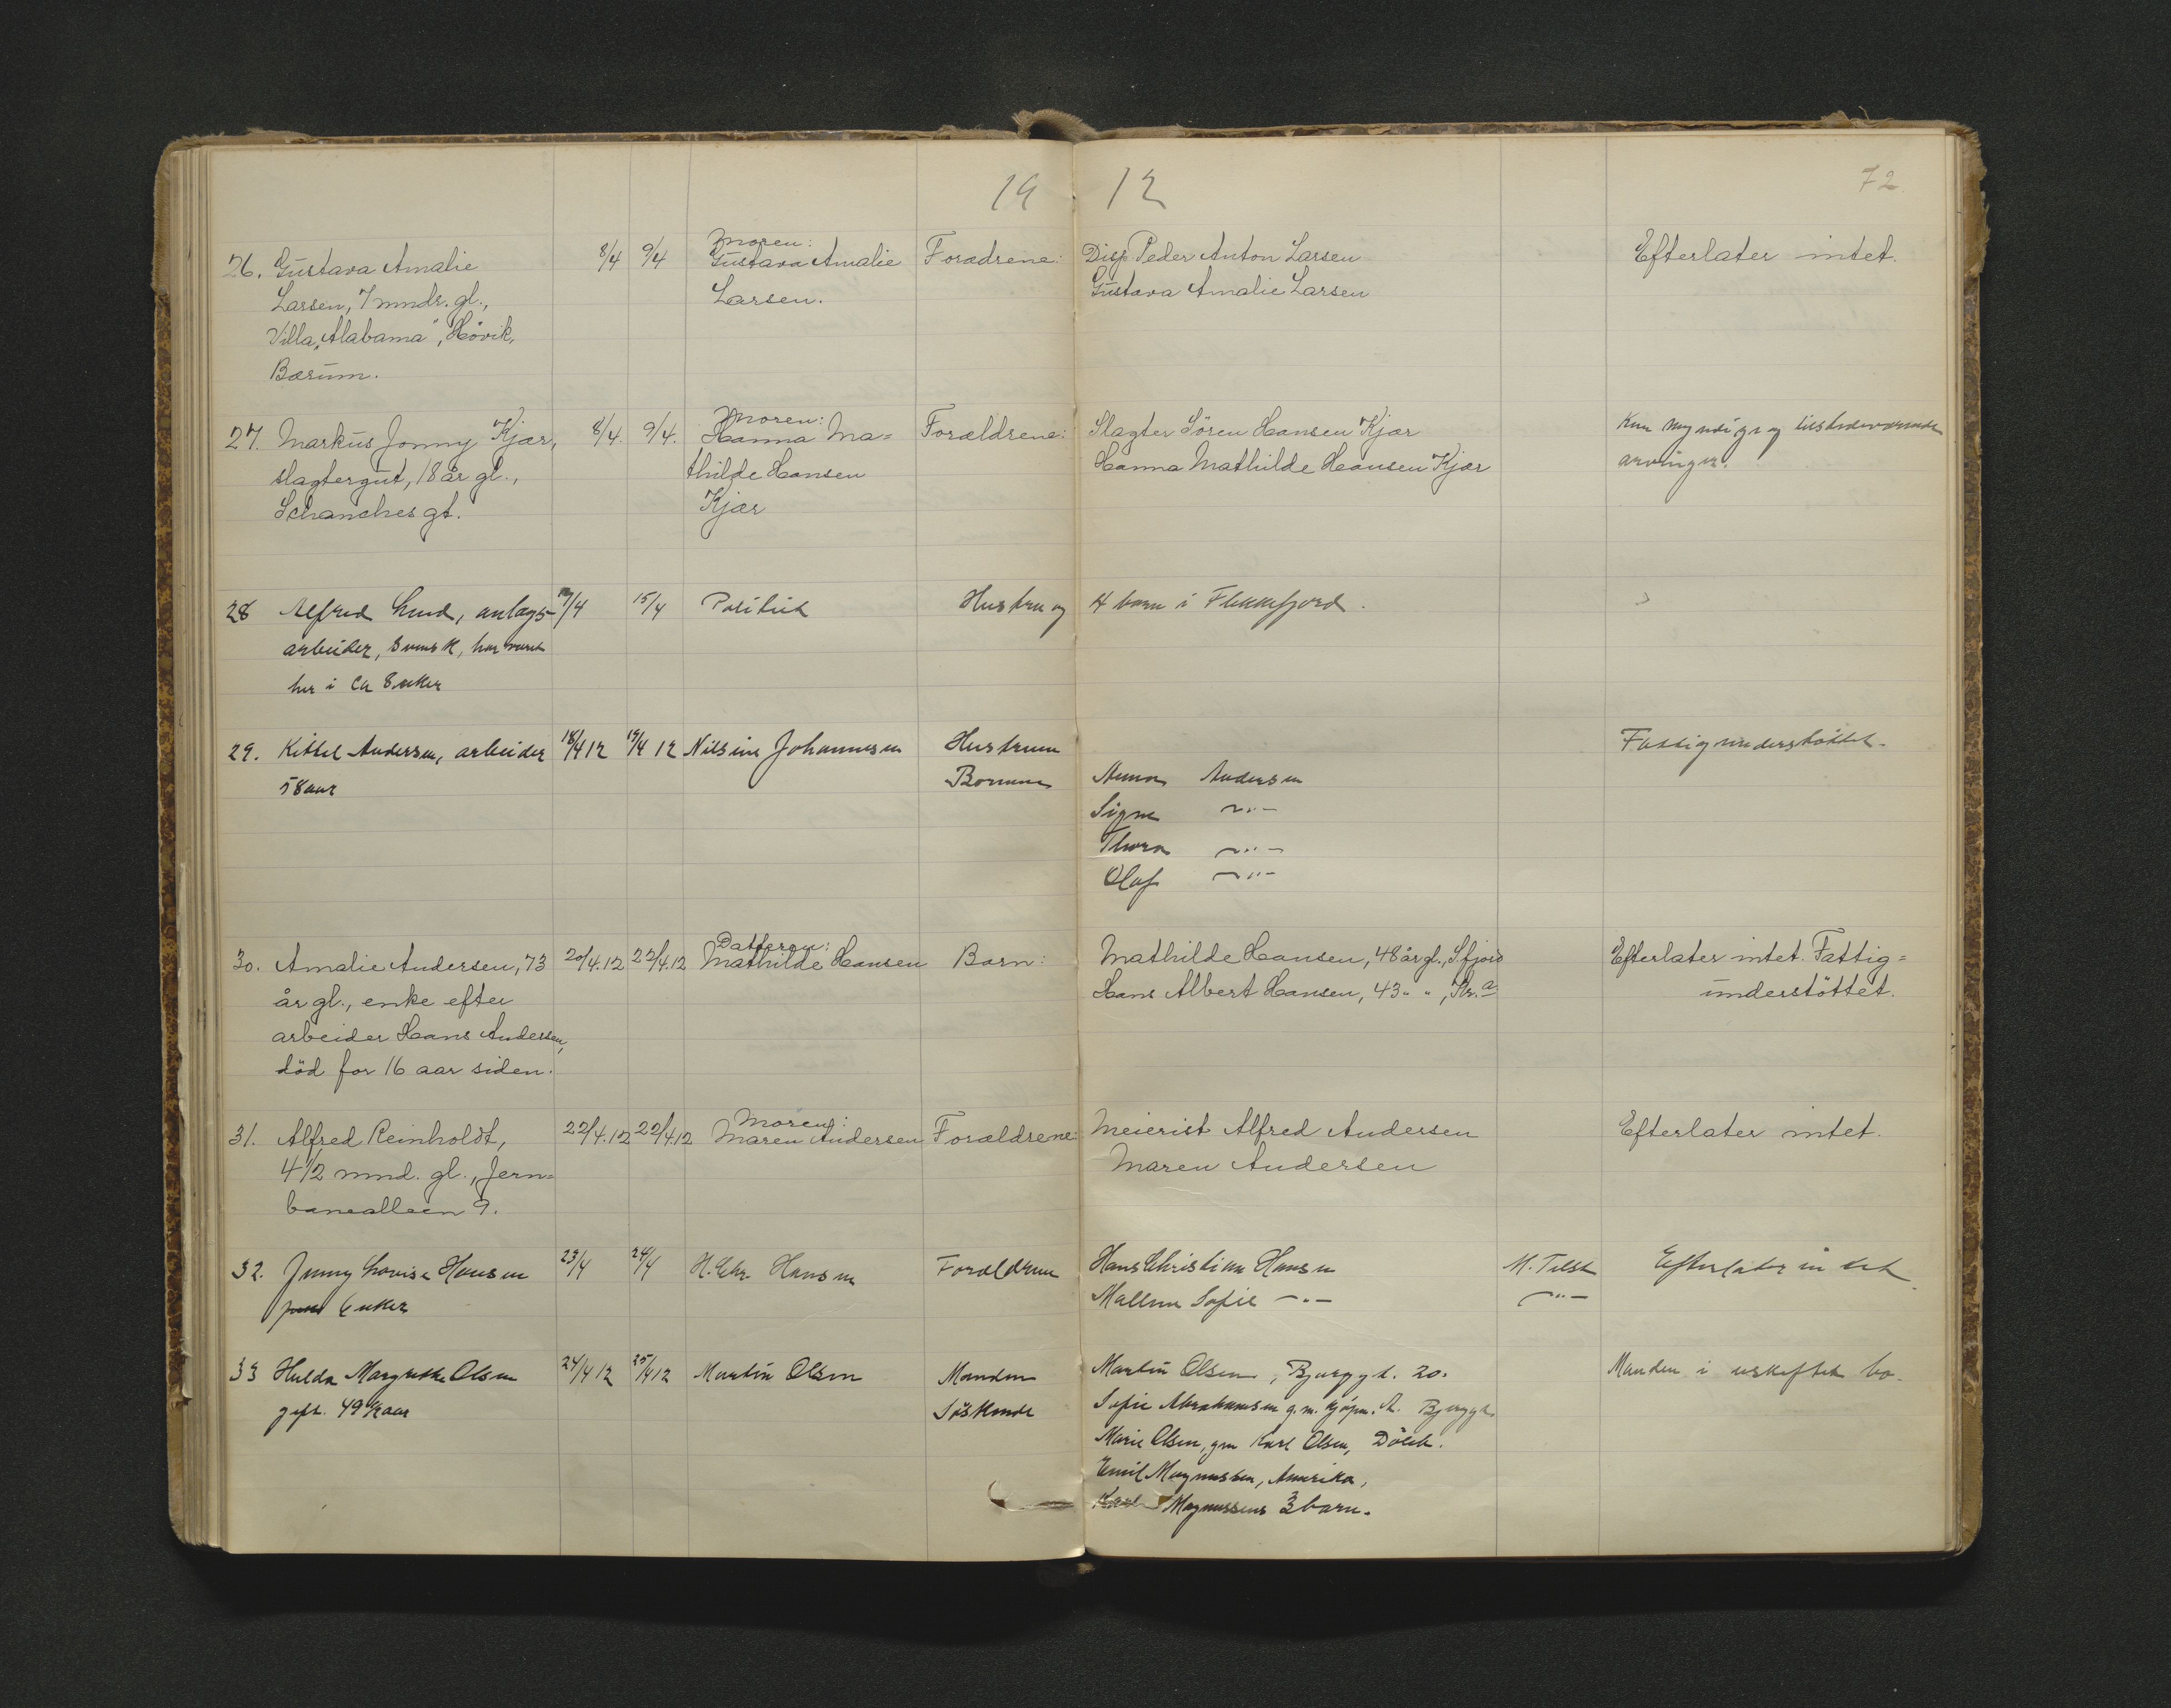 19 12
72
26. Gustava Amalie
Larsen, 7 mndr. gl.,
Villa "Alabama", Hövik,
Bærum.
8/4 9/4
Moren:
Gustava Amalie
Larsen.
Foradrene:
Disp Peder Anton Larsen
Gustava Amalie Larsen
Efterlater intet.
27. Markus Jonny Kjær,
slagtergut, 18 år gl.,
Schanches gt.
8/4. 9/4.
Moren:
Hanna Ma=
thilde Hansen
Kjær
Forældrene:
Slagter Sören Hansen Kjær
Hanna Mathilde Hansen Kjær
Kun myndige og tilstedeværende
arvinger.
28 Alfred Lund, anlægs-
arbeider, svensk, har været
her i ca 8 uker
/4 15/4
Politiet
Hustru og
4 barn i Flekkefjord.
29. Kittel Andersen, arbeider
58 aar
18/4 12 19/4 12
Nilsine Johannesen
Hustruen
Børnene
Anna Andersen
Signe -"-
Thora -"-
Olaf -"-
Fattigunderstøttet.
30. Amalie Andersen, 73
år gl., enke efter
arbeider Hans Andersen,
död for 16 aar siden.
20/4.12 22/4.12
Datteren:
Mathilde Hansen
Barn:
Mathilde Hansen, 48 år gl., S.fjord
Hans Albert Hansen, 43 " ", Kr.a
Efterlater intet. Fattig=
understöttet.
31. Alfred Reinholdt,
4 1/2 mnd. gl., Jern=
banealleen 9.
22/4.12 22/4.12
Moren:
Maren Andersen
Forældrene:
Meierist Alfred Andersen
Maren Andersen
Efterlater intet.
32. Jenny Lovise Hansen
6 uker
23/4 24/4
H. Chr. Hansen
Forældrene
Hans Christian Hansen
Sofie -"-
M. Telst
-"-
Efterlater intet
33 Hulda Margrethe Olsen
gift. 49 1/2 aar
24/4 12 25/4 12
Martin Olsen
Manden
Søskende
Martin Olsen, Bjerggt. 20.
Sofie Abrahamsen g.m. kjøpm. A. Bjerggt.
Marie Olsen, gm Karl Olsen, Dölek.
Emil Magnussen, Amerika,
Karl Magnussens 3 barn.
Manden i uskiftet bo.